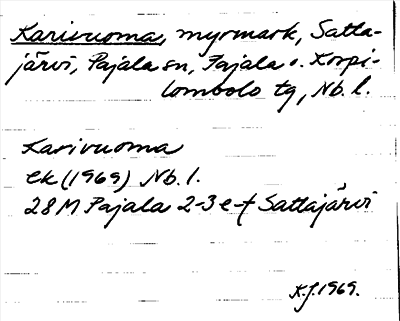 Karivuoma, myrmark, Satta-
järvi, Pajala sn, Pajala o. Korpi-
lombolo tg, Nb. l.
Karivuoma
ek (1969) Nb. l.
28M Pajala 2-3 e-f Sattajärvi
K.J. 1969.